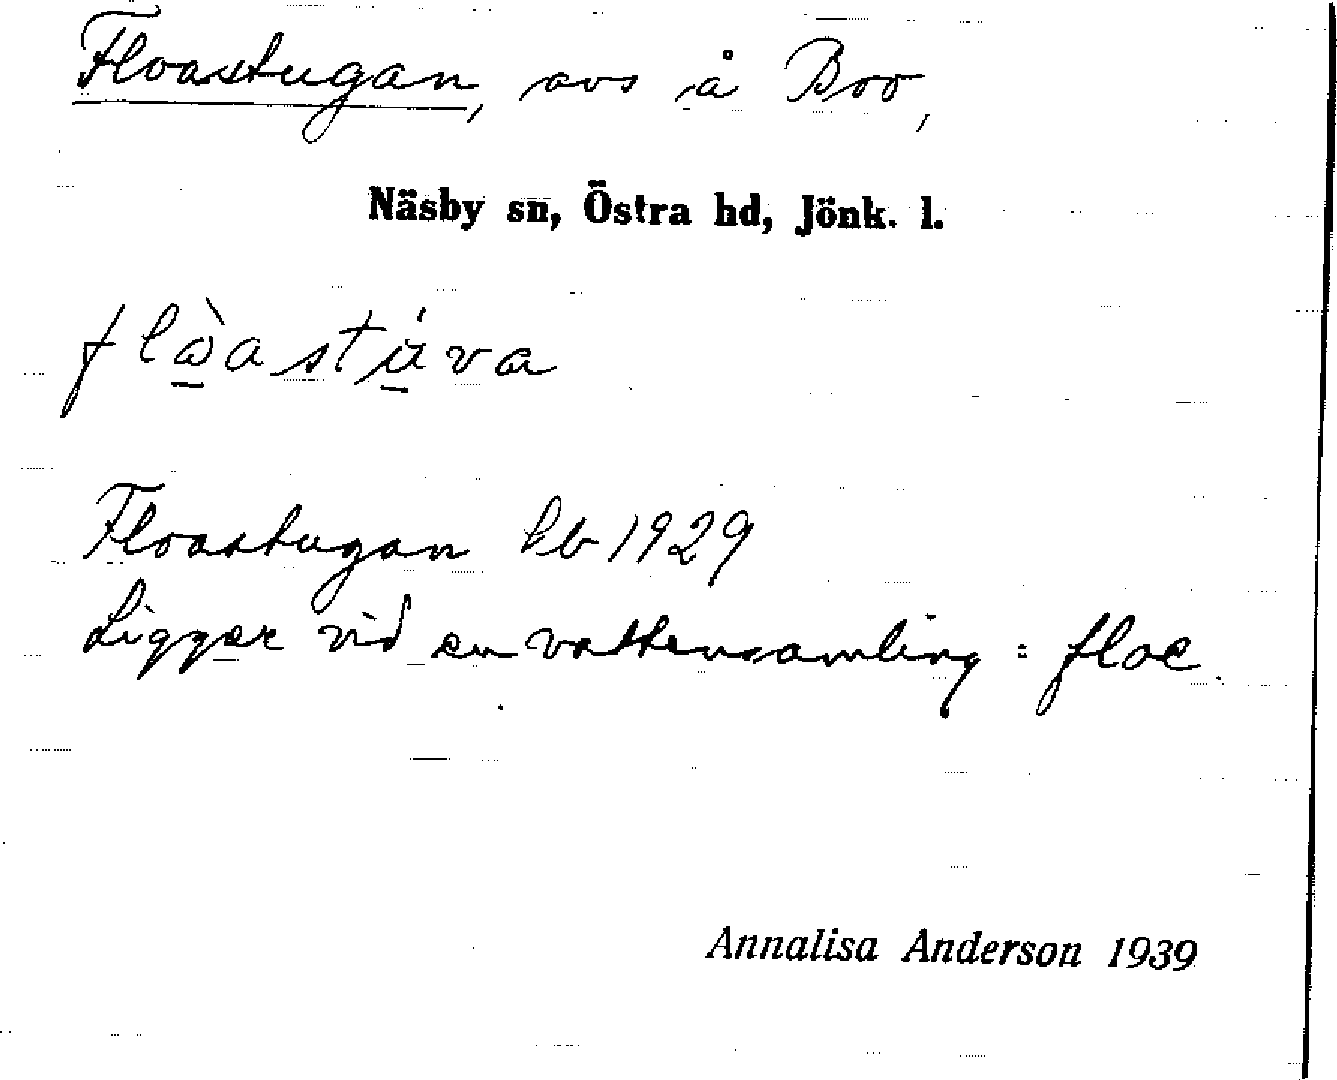 Floastugan, avs å Boo,
Näsby sn, Östra hd, Jönk. l.
flὼ̲astú̲va
Floastugan lb 1929
Ligger vid en vattensamling = floe.
Annalisa Anderson 1939